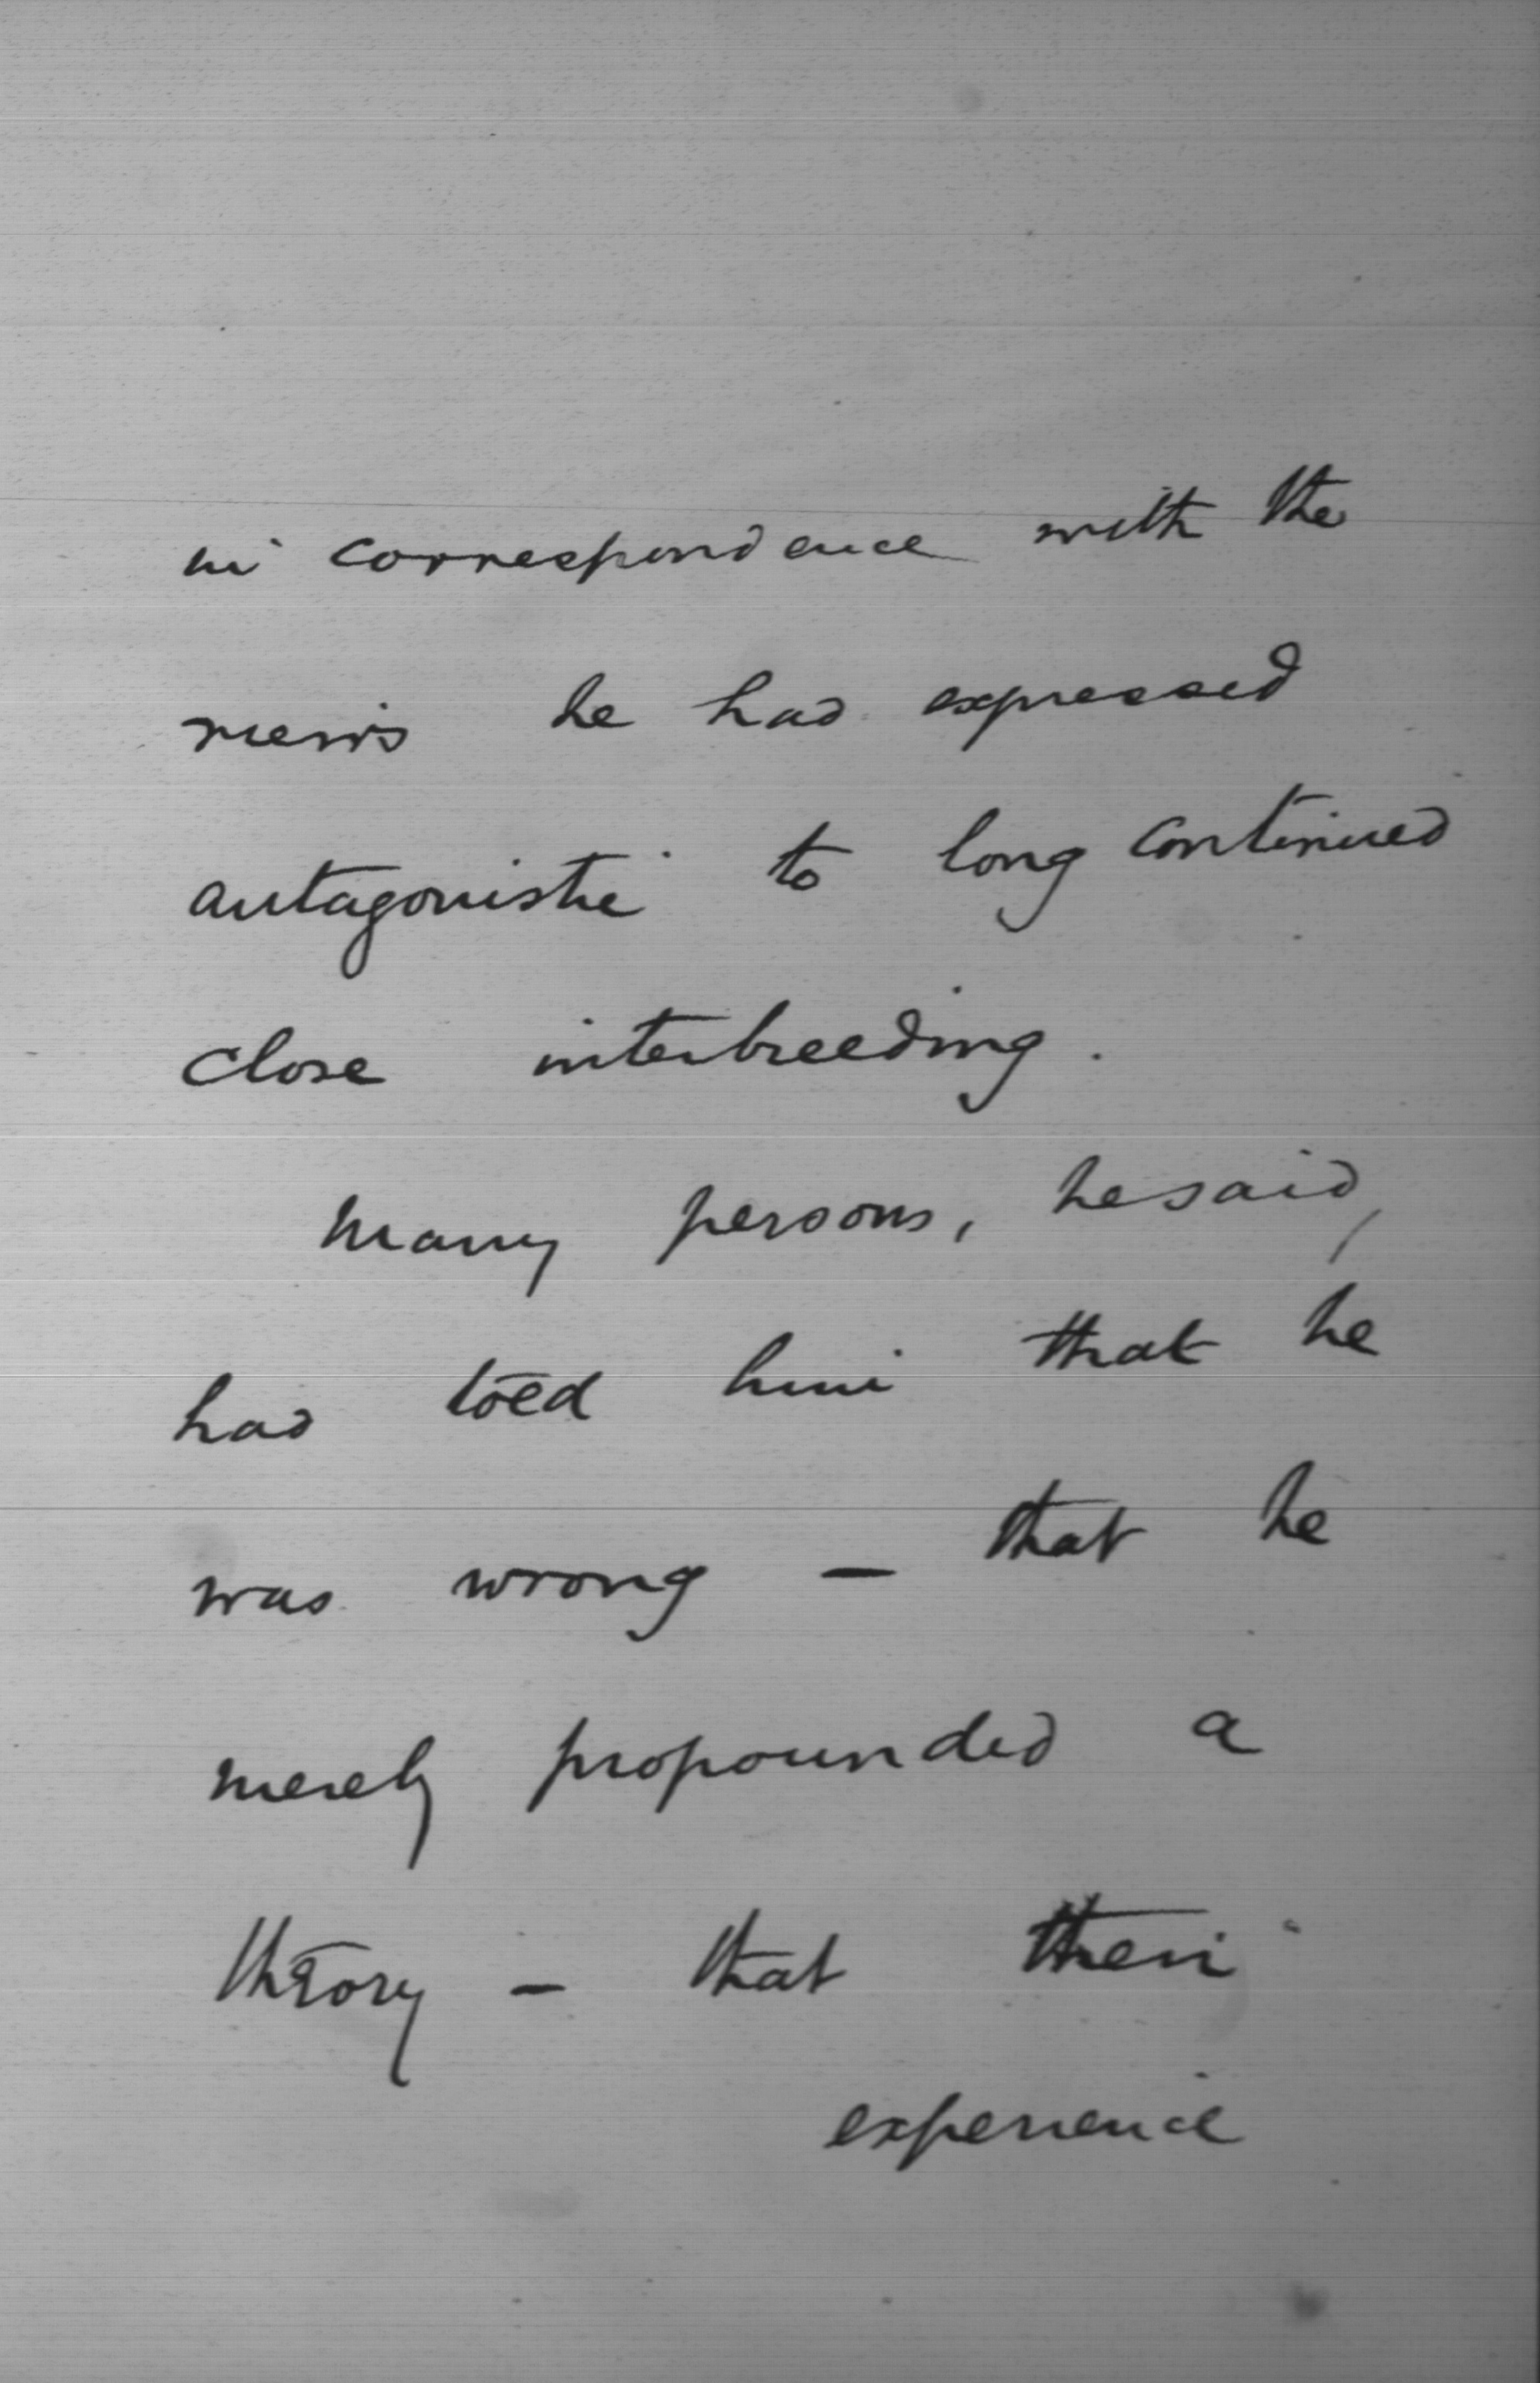 in correspondence with the
views he had expressed
antagonistic to long continued
close interbreeding.
Many persons, he said,
had told him that he
was wrong – that he
merely propounded a
theory – that their
experience